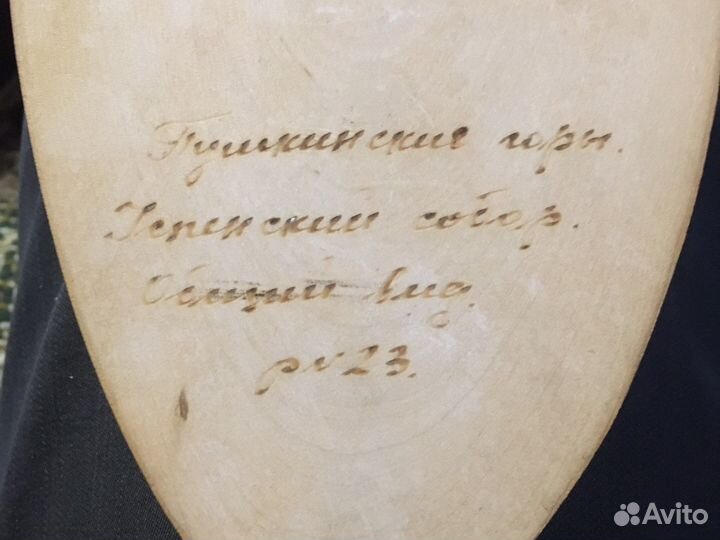 Пушкинские горы.
Успенский собор.
Общий вид.
р№23.
Avito